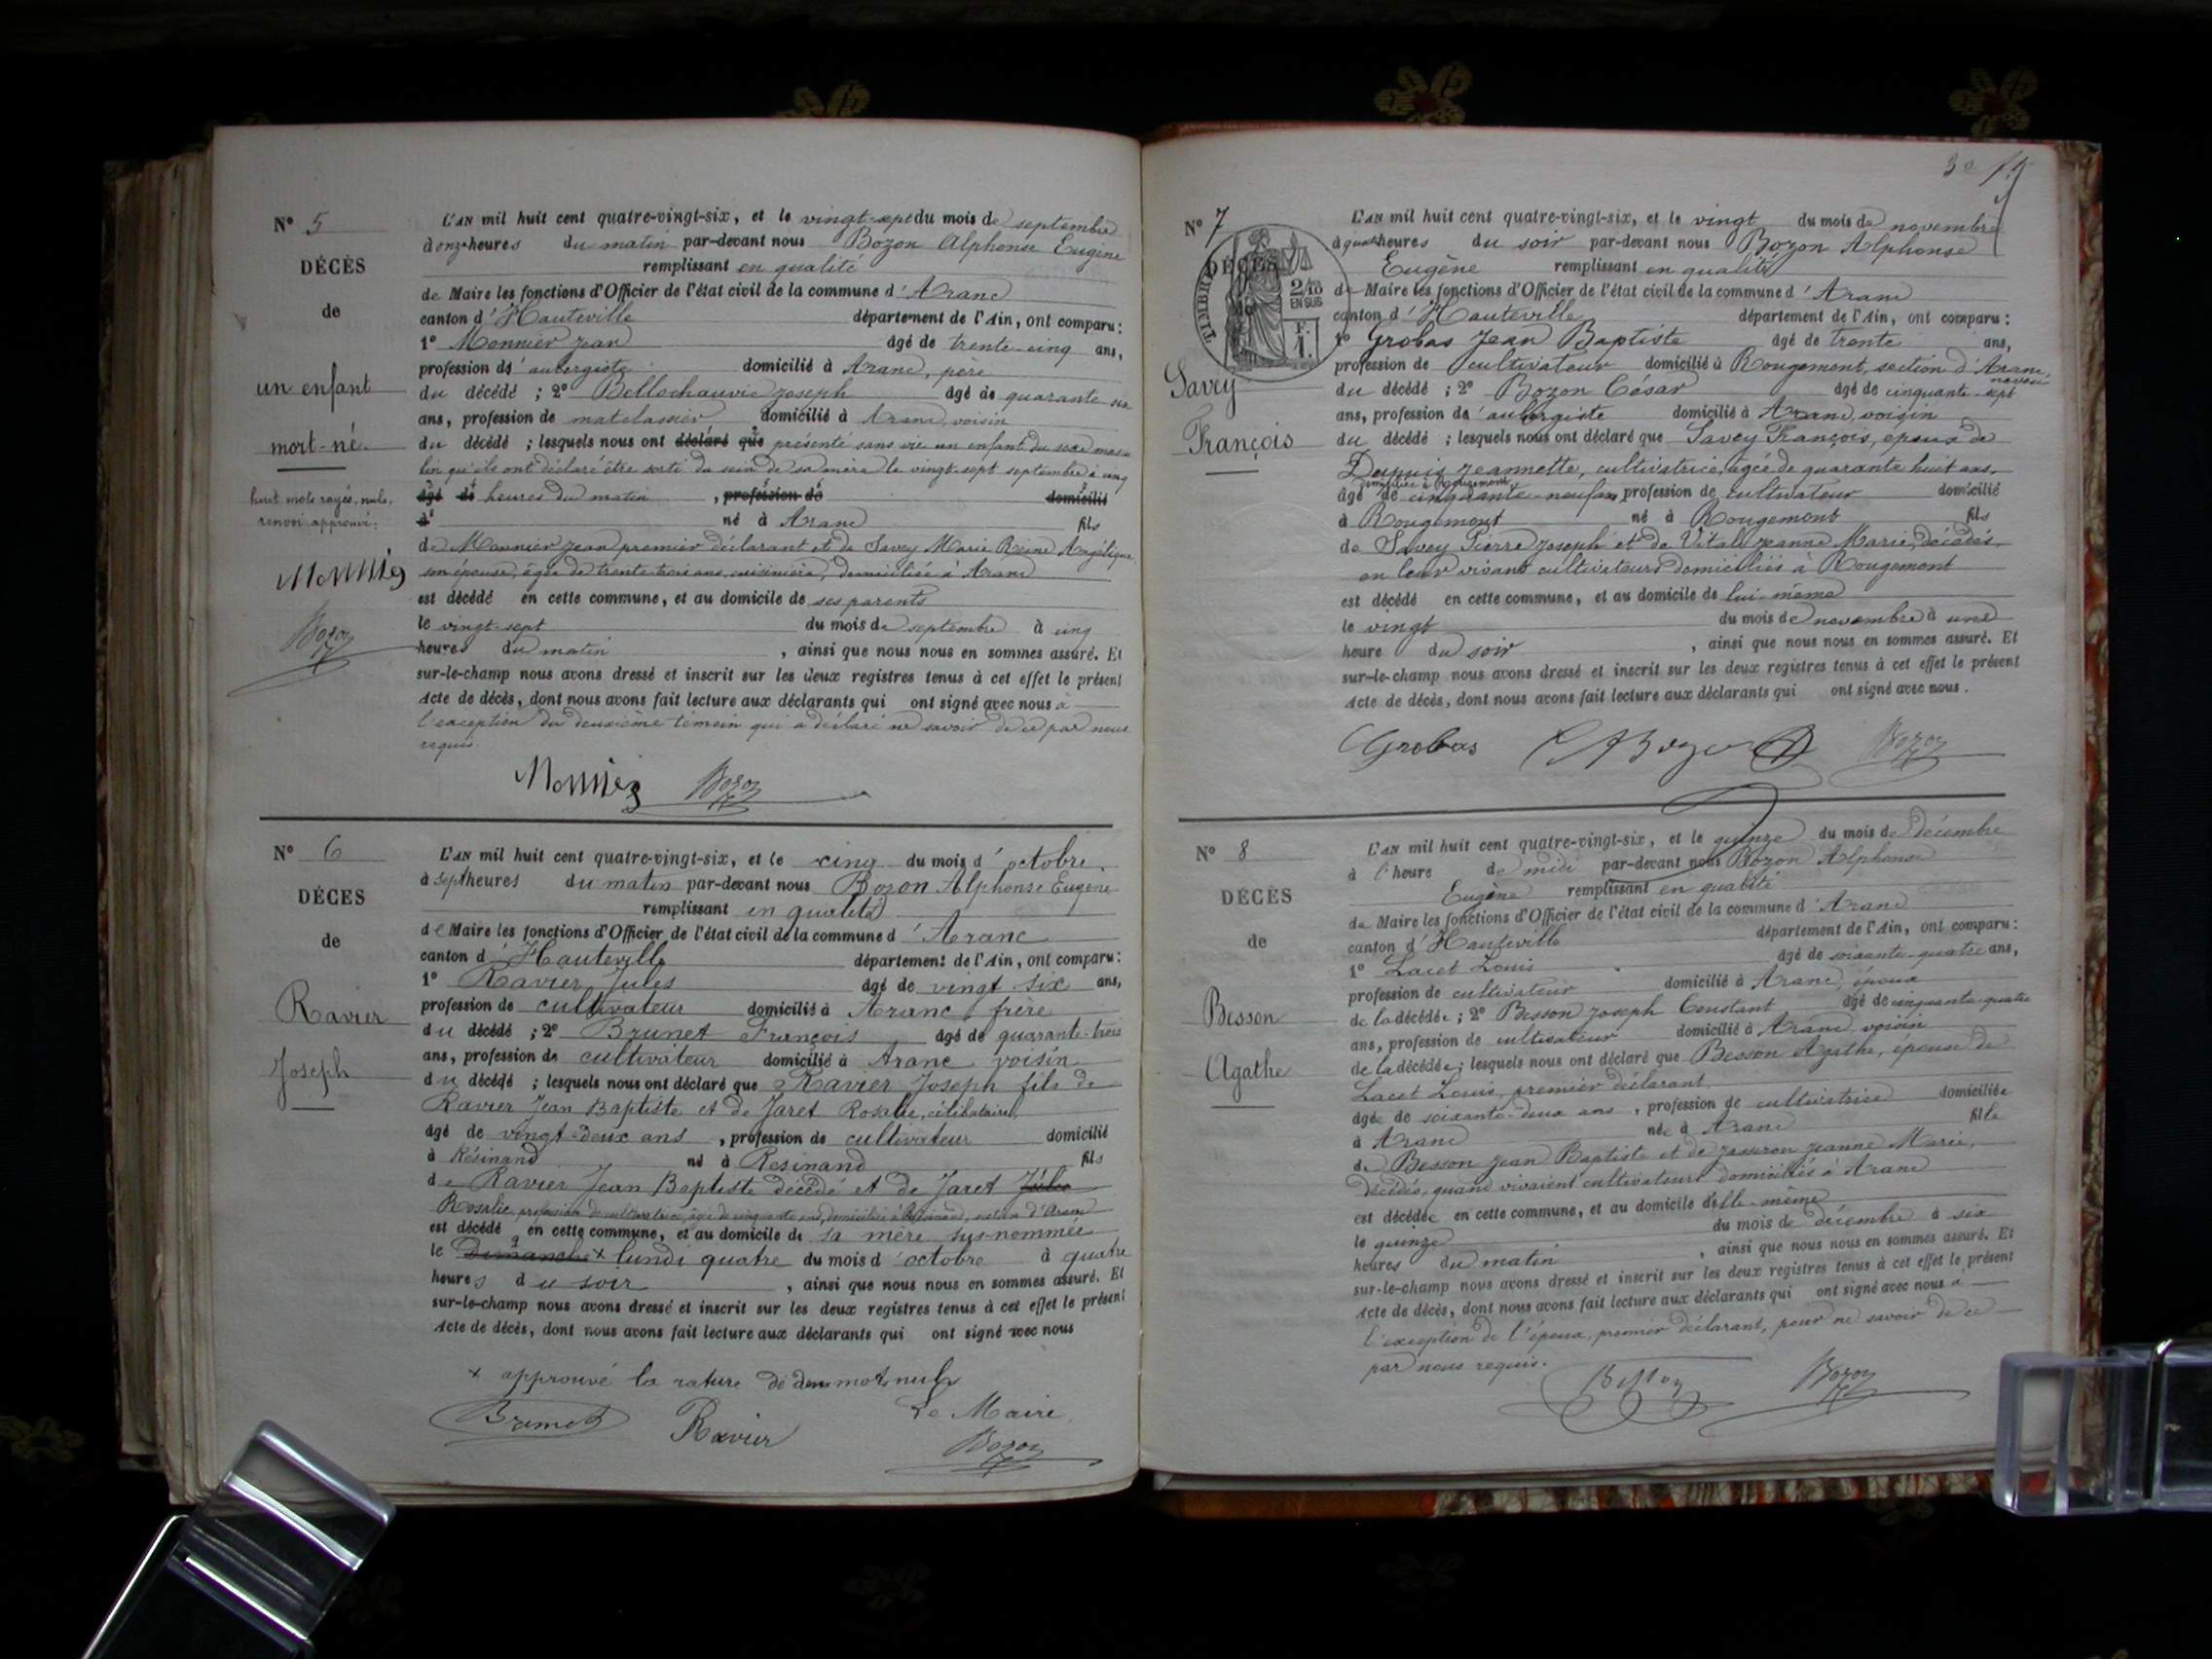 N° 5
DÉCÈS
de
un enfant
mort-né.
huit mots rayés, nuls,
renvoi approuvé:
Monnier
Bozon
L'AN mil huit cent quatre-vingt-six, et le vingt-sept du mois de septembre
à onze heures du matin par-devant nous Bozon Alphonse Eugène
remplissant en qualité
de Maire les fonctions d'Officier de l'état civil de la commune d'Aranc
canton d'Hauteville département de l'Ain, ont comparu:
1° Monnier Jean âgé de trente-cinq ans,
profession d'aubergiste domicilié à Aranc, père
du décédé ; 2° Bellochauvie Joseph âgé de quarante six
ans, profession de matelassier domicilié à Aranc, voisin
du décédé ; lesquels nous ont déclaré que présenté sans vie un enfant du sexe mascu-
lin qu'ils ont déclaré être sorti du sein de sa mère le vingt-sept septembre à cinq
âgé de heures du matin , profession de domicilié
à né à Aranc fils
de Monnier Jean premier déclarant et de Savey Marie Reine Angélique
son épouse, âgée de trente-trois ans, cuisinière, domiciliée à Aranc
est décédé en cette commune, et au domicile de ses parents
le vingt-sept du mois de septembre à cinq
heures du matin , ainsi que nous nous en sommes assuré. Et
sur-le-champ nous avons dressé et inscrit sur les deux registres tenus à cet effet le présent
Acte de décès, dont nous avons fait lecture aux déclarants qui ont signé avec nous à
l'exception du deuxième témoin qui a déclaré ne savoir de ce par nous
requis
Monnier Bozon
N° 6
DÉCÈS
de
Ravier
Joseph
L'AN mil huit cent quatre-vingt-six, et le cinq du mois d'octobre
à sept heures du matin par-devant nous Bozon Alphonse Eugène
remplissant en qualité
de Maire les fonctions d'Officier de l'état civil de la commune d'Aranc
canton d'Hauteville département de l'Ain, ont comparu:
1° Ravier Jules âgé de vingt six ans,
profession de cultivateur domicilié à Aranc, frère
du décédé ; 2° Brunet François âgé de quarante-trois
ans, profession de cultivateur domicilié à Aranc voisin
du décédé ; lesquels nous ont déclaré que Ravier Joseph fils de
Ravier Jean Baptiste et de Jaret Rosalie, célibataire,
âgé de vingt-deux ans , profession de cultivateur domicilié
à Résinand né à Résinand fils
de Ravier Jean Baptiste décédé et de Jaret Jules
Rosalie, profession de cultivatrice, âgée de cinquante ans, domiciliée à Résinand, section d'Aranc
est décédé en cette commune, et au domicile de sa mère sus-nommée
le Dimanche x lundi quatre du mois d'octobre à quatre
heures du soir , ainsi que nous nous en sommes assuré. Et
sur-le-champ nous avons dressé et inscrit sur les deux registres tenus à cet effet le présent
Acte de décès, dont nous avons fait lecture aux déclarants qui ont signé avec nous
x approuvé la rature de deux mots nuls
Brunet Ravier Le Maire
Bozon
30
N° 7
DÉCÈS
TIMBRE
2/10
EN SUS
F.
1.
Savey
François
L'AN mil huit cent quatre-vingt-six, et le vingt du mois de novembre
à quatre heures du soir par-devant nous Bozon Alphonse
Eugène remplissant en qualité
de Maire les fonctions d'Officier de l'état civil de la commune d'Aranc
canton d'Hauteville département de l'Ain, ont comparu:
1° Grobas Jean Baptiste âgé de trente ans,
profession de cultivateur domicilié à Rougemont, section d'Aranc,
neveu
du décédé ; 2° Bozon César âgé de cinquante-sept
ans, profession d'aubergiste domicilié à Aranc, voisin
du décédé ; lesquels nous ont déclaré que Savey François, époux de
Dupuis Jeannette, cultivatrice, âgée de quarante huit ans,
domiciliée à Rougemont,
âgé de cinquante-neuf ans, profession de cultivateur domicilié
à Rougemont né à Rougemont fils
de Savey Pierre Joseph et de Vitale Jeanne Marie, décédés,
en leur vivant cultivateurs domiciliés à Rougemont
est décédé en cette commune, et au domicile de lui-même
le vingt du mois de novembre à une
heure du soir , ainsi que nous nous en sommes assuré. Et
sur-le-champ nous avons dressé et inscrit sur les deux registres tenus à cet effet le présent
Acte de décès, dont nous avons fait lecture aux déclarants qui ont signé avec nous.
Grobas Bozon Bozon
N° 8
DÉCÈS
de
Besson
Agathe
L'AN mil huit cent quatre-vingt-six, et le quinze du mois de décembre
à l'heure de midi par-devant nous Bozon Alphonse
Eugène remplissant en qualité
de Maire les fonctions d'Officier de l'état civil de la commune d'Aranc
canton d'Hauteville département de l'Ain, ont comparu:
1° Lacet Louis âgé de soixante-quatre ans,
profession de cultivateur domicilié à Aranc, époux
de la décédée ; 2° Besson Joseph Constant âgé de cinquante-quatre
ans, profession de cultivateur domicilié à Aranc, voisin
de la décédée ; lesquels nous ont déclaré que Besson Agathe, épouse de
Lacet Louis, premier déclarant
âgée de soixante-deux ans , profession de cultivatrice domiciliée
à Aranc née à Aranc fille
de Besson Jean Baptiste et de Jasseron Jeanne Marie,
décédés, quand vivaient cultivateurs domiciliés à Aranc
est décédée en cette commune, et au domicile d'elle-même
le quinze du mois de décembre à six
heures du matin , ainsi que nous nous en sommes assuré. Et
sur-le-champ nous avons dressé et inscrit sur les deux registres tenus à cet effet le présent
Acte de décès, dont nous avons fait lecture aux déclarants qui ont signé avec nous à
l'exception de l'époux, premier déclarant, pour ne savoir de ce
par nous requis.
Besson Bozon